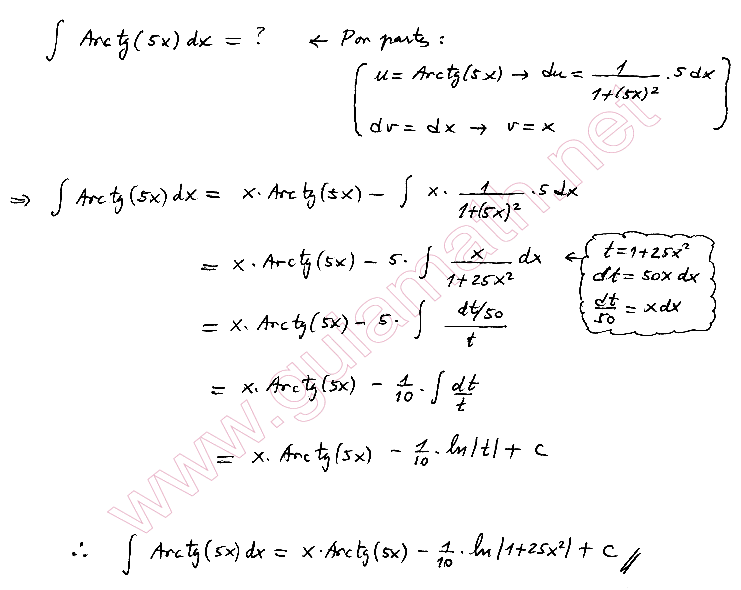 ∫ Arctg(5x) dx = ? ← Por parts:
u = Arctg(5x) → du = 1/(1+(5x)²) · 5 dx
dv = dx → v = x
⇒ ∫ Arctg(5x) dx = x · Arctg(5x) − ∫ x · 1/(1+(5x)²) · 5 dx
= x · Arctg(5x) − 5 · ∫ x/(1+25x²) dx ←
t = 1+25x²
dt = 50x dx
dt/50 = x dx
= x · Arctg(5x) − 5 · ∫ (dt/50)/t
= x · Arctg(5x) − 1/10 · ∫ dt/t
= x · Arctg(5x) − 1/10 · ln|t| + c
∴ ∫ Arctg(5x) dx = x · Arctg(5x) − 1/10 · ln|1+25x²| + c //
www.guiamath.net